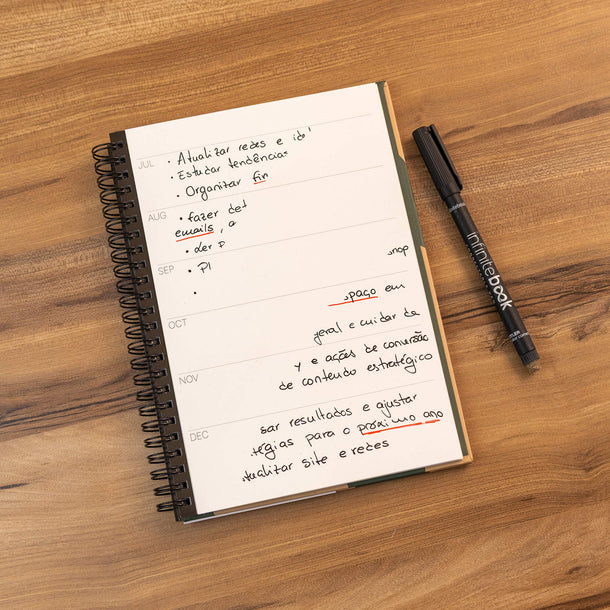 JUL
• Atualizar redes e
• Estudar tendências
• Organizar fin
AUG
• fazer
emails, a
• ler
SEP
• Pl
•
shop
OCT
espaço em
geral e cuidar da
NOV
y e ações de conversão
de conteúdo estratégico
DEC
sar resultados e ajustar
tégias para o próximo ano
atualizar site e redes
infinitebook